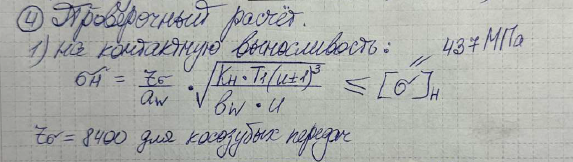 ④ Проверочный расчёт.
1) на контактную выносливость: 437 МПа
σH = Zσ/aw · √(KH · T1(u±1)³/(bw · u)) ≤ [σ]H
Zσ = 8400 для косозубых передач